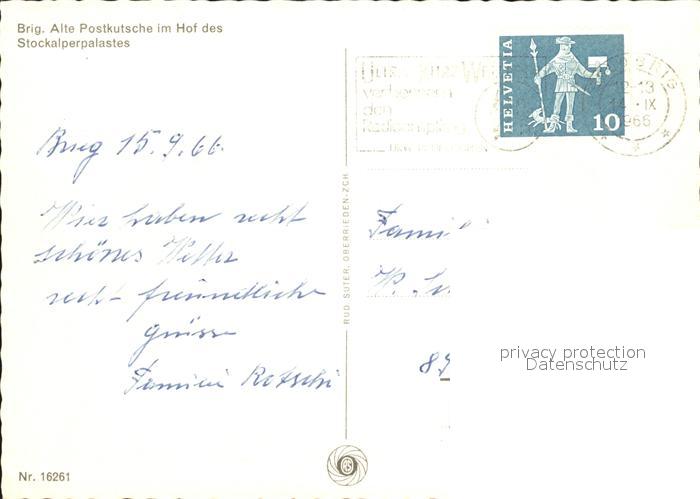 Brig. Alte Postkutsche im Hof des
Stockalperpalastes
HELVETIA
10
BRIG
12-13
14. IX
1966
verbessern
den
Radioempfang
Brig 15.9.66.
Wier haben recht
schönes Wetter
recht freundliche
grüsse
Familie Rotschi
RUD. SUTER, OBERRIEDEN-ZCH.
Famil
W. Su
89
privacy protection
Datenschutz
Nr. 16261